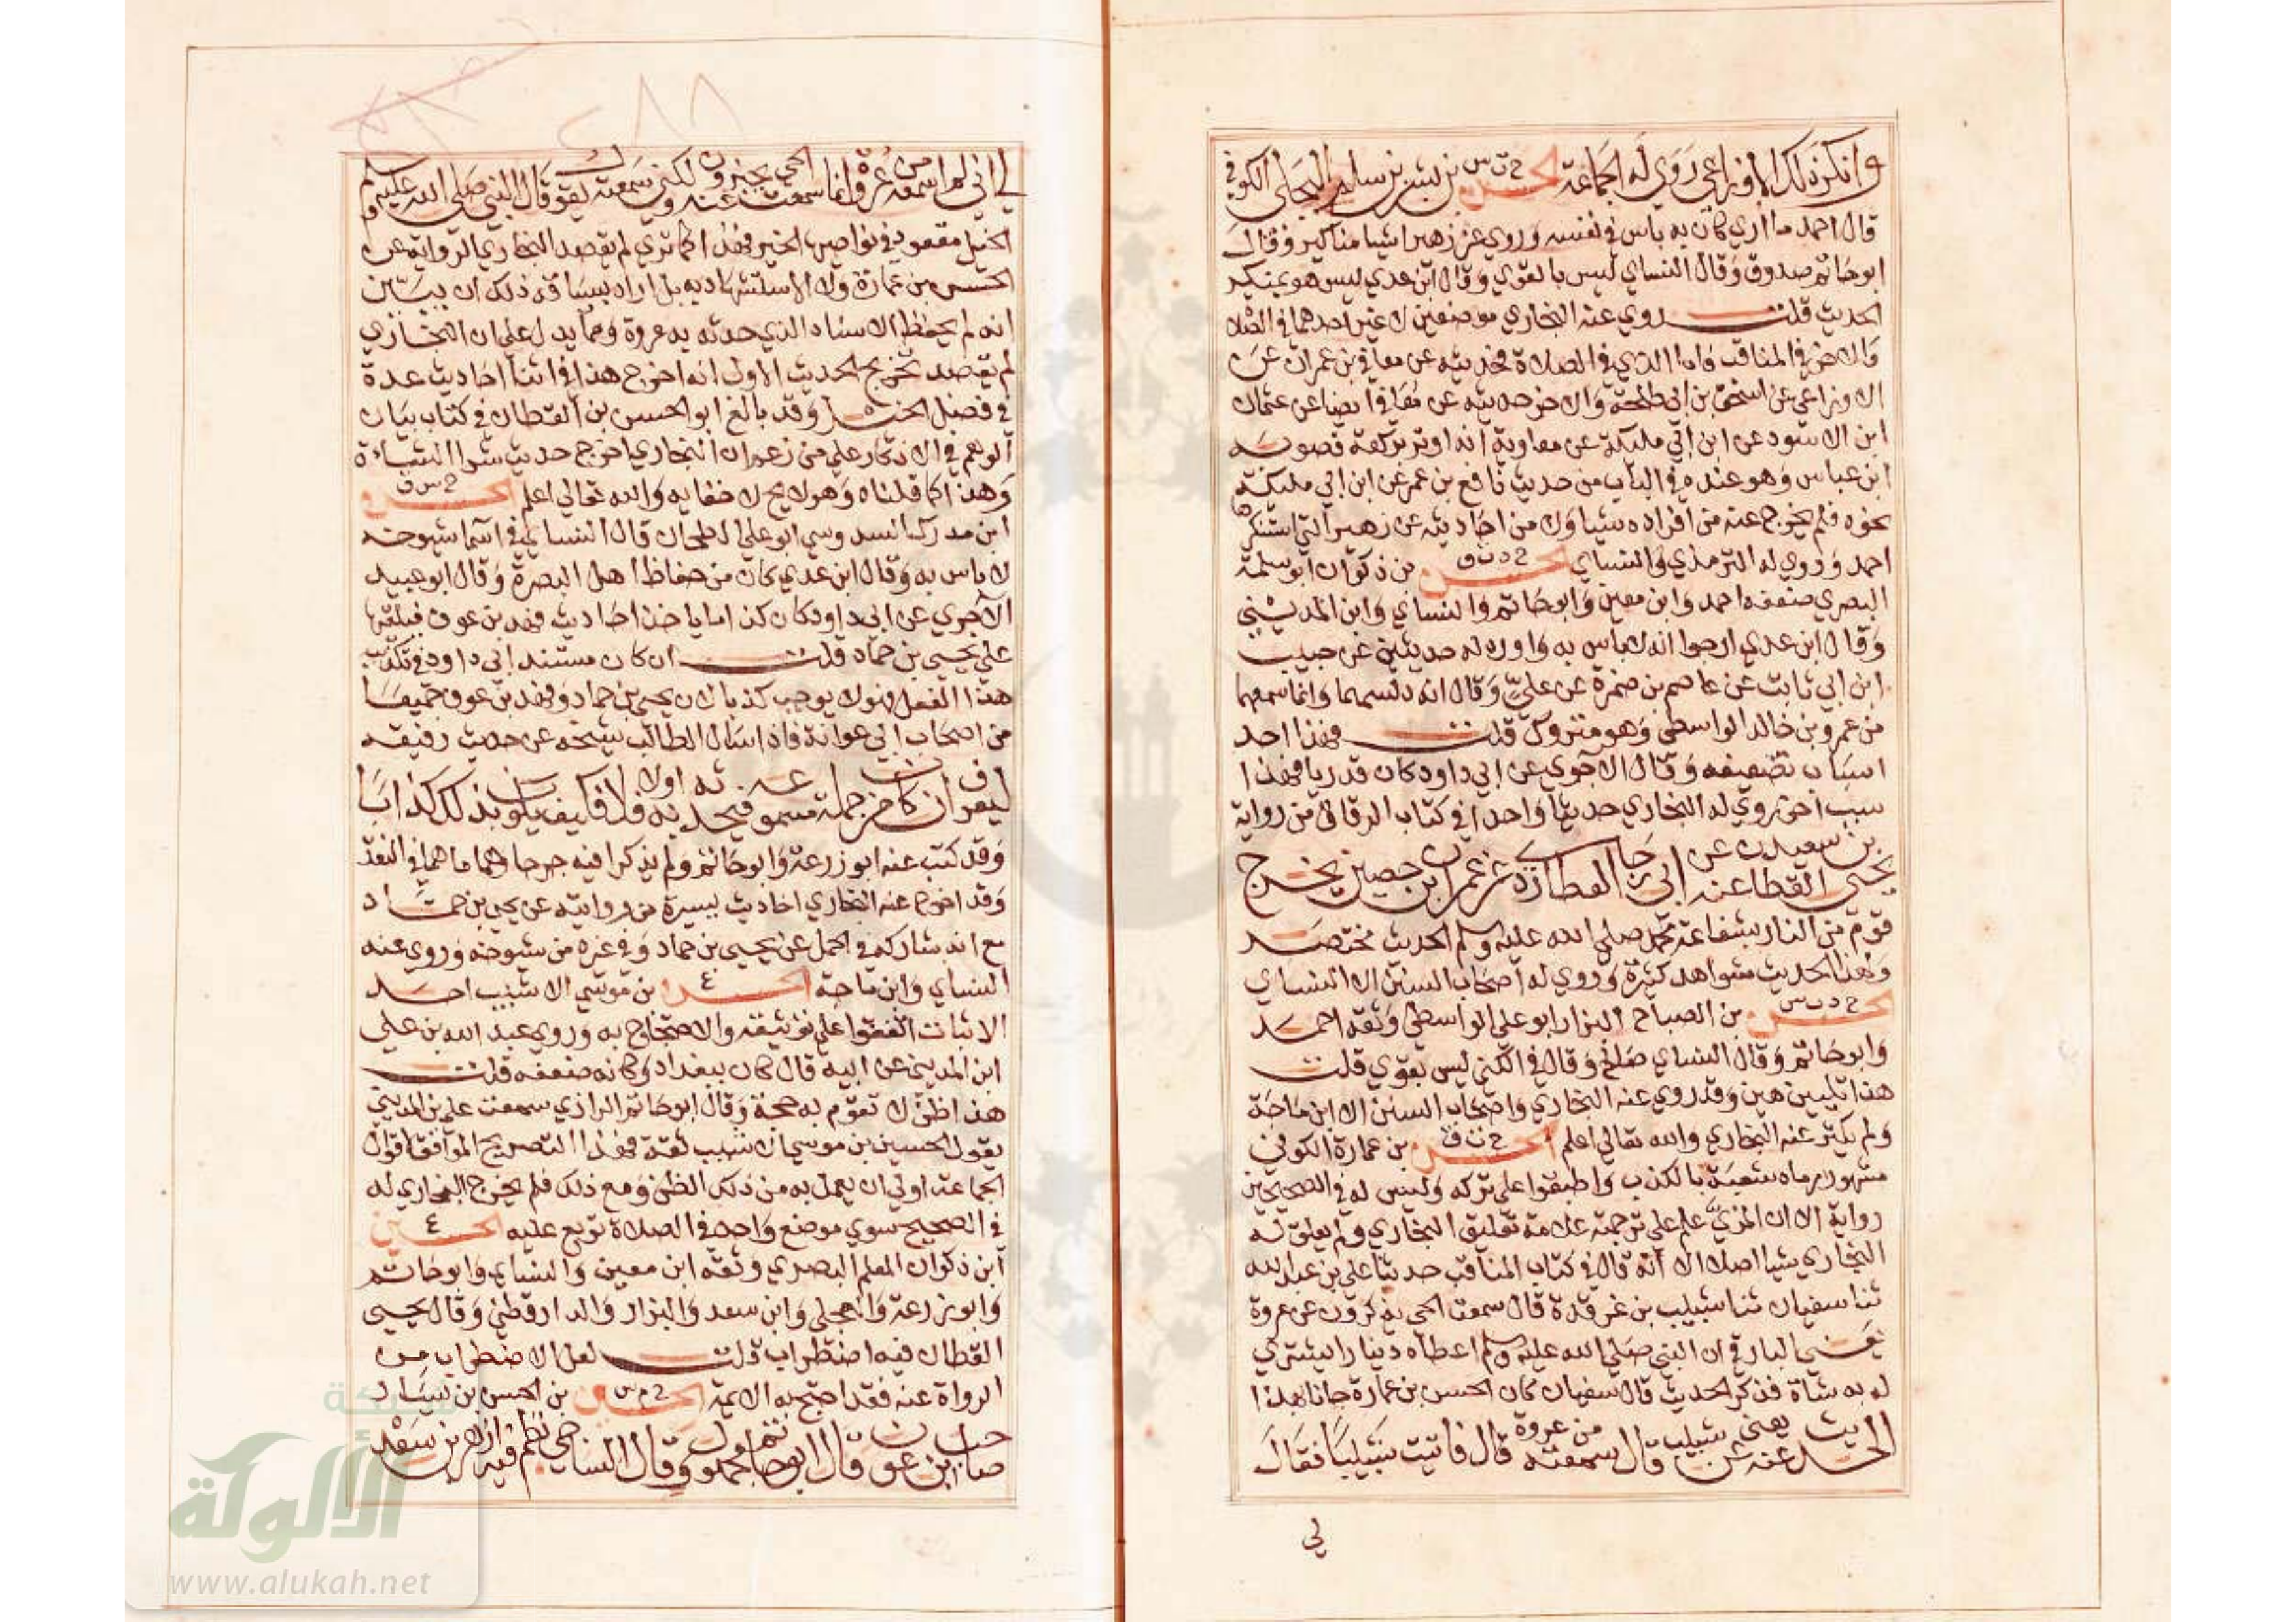 وانكر ذلك الاوزاعي روي له الجماعة الحسن خ ت س بن بشر بن سلم البجلي الكوفي
قال احمد ما اري كان به باس في نفسه وروي عن زهير اشيا مناكير وقال
ابو حاتم صدوق وقال النساي ليس بالقوي وقال ابن عدي ليس هو بمنكر
الحديث قلت روي عنه البخاري موضعين لا غير احدهما في الصلاة
والاخر في المناقب فاما الذي في الصلاة فحديثه عن معافي بن عمران عن
الاوزاعي عن اسحق بن ابي طلحة والاخر حديثه عن معافي ايضا عن عثمان
ابن الاسود عن ابن ابي مليكة عن معاوية انه اوتر بركعة فصوبه
ابن عباس وهو عنده في الباب من حديث نافع بن عمر عن ابن ابي مليكة
نحوه فلم يخرج عنه من افراده شيا ولا من احاديثه عن زهير التي استنكرها
احمد وروي له الترمذي والنساي الحسن خ د ت ق بن ذكوان ابو سلمة
البصري ضعفه احمد وابن معين وابو حاتم والنساي وابن المديني
وقال ابن عدي ارجوا انه لا باس به واورد له حديثين عن حبيب
ابن ابي ثابت عن عاصم بن ضمرة عن علي وقال انه دلسهما وانما سمعهما
من عمرو بن خالد الواسطي وهو متروك قلت فهذا احد
اسباب تضعيفه وقال الاجري عن ابي داود كان قدريا فهذا
سبب اخر روي له البخاري حديثا واحدا في كتاب الرقاق من رواية
يحيي بن سعيد القطان عنه عن ابي رجا العطاردي عن عمران بن حصين يخرج
قوم من النار بشفاعة محمد صلي الله عليه وسلم الحديث مختصر
ولهذا الحديث شواهد كثيرة وروي له اصحاب السنن الا النساي
الحسن خ د ت س بن الصباح البزار ابو علي الواسطي وثقه احمد
وابو حاتم وقال النساي صالح وقال في الكني ليس بقوي قلت
هذا تليين هين وقد روي عنه البخاري واصحاب السنن الا ابن ماجة
ولم يكثر عنه البخاري والله تعالي اعلم الحسن خ ت ق بن عمارة الكوفي
مشهور رماه شعبة بالكذب واطبقوا علي تركه وليس له في الصحيحين
رواية الا ان المزي علم علي ترجمته علامة تعليق البخاري ولم يعلق له
البخاري شيا اصلا الا انه قال في كتاب المناقب حدثنا علي بن عبد الله
ثنا سفيان ثنا شبيب بن غرقدة قال سمعت الحي يذكرون عن عروة
يعني البارقي ان النبي صلي الله عليه وسلم اعطاه دينارا ليشتري
له به شاة فذكر الحديث قال سفيان كان الحسن بن عمارة جانا بهذا
الحديث عنه يعني عن شبيب قال سمعته من عروة قال فاتيت شبيبا فقال
لي
لي اني لم اسمعه من عروة وانما سمعت الحي يخبرون عنه ولكني سمعته يقول قال النبي صلي الله عليه وسلم
الخيل معقود في نواصيها الخير فهذا كما تري لم يقصد البخاري الرواية عن
الحسن بن عمارة ولا الاستشهاد به بل اراد بسياقه ذلك ان يبين
انه لم يحفظ الاسناد الذي حدثه به عروة ومما يدل علي ان البخاري
لم يقصد تخريج الحديث الاول انه اخرج هذا في اثنا احاديث عدة
في فضل الخيل وقد بالغ ابو الحسن بن القطان في كتاب بيان
الوهم في الانكار علي من زعم ان البخاري اخرج حديث شرا الشاة
وهذا كما قلناه وهو لا يح لا خفا به والله تعالي اعلم الحسن خ س ق
ابن مدرك السدوسي ابو علي الطحان قال النساي في اسما شيوخه
لا باس به وقال ابن عدي كان من حفاظ اهل البصرة وقال ابو عبيد
الآجري عن ابي داود كان كذابا ياخذ احاديث فهد بن عوف فيلقها
علي يحيي بن حماد قلت ان كان مستند ابي داود في تكذيبه
هذا الفعل فهو لا يوجب كذبا لان يحيي بن حماد وفهد بن عوف جميعا
من اصحاب ابي عوانة فاذا سال الطالب شيخه عن حديث رفيقه
ليعرف ان كان من جملة مسموعه فيحدثه به اولا فلا فكيف يكون بذلك كذابا
وقد كتب عنه ابو زرعة وابو حاتم ولم يذكرا فيه جرحا وهما ما هما في النقد
وقد اخرج عنه البخاري احاديث يسيرة من روايته عن يحيي بن حماد
مع انه شاركه في الحمل عن يحيي بن حماد وفي غيره من شيوخه وروي عنه
النساي وابن ماجة الحسن ٤ بن موسي الاشيب احد
الاثبات اتفقوا علي توثيقه والاحتجاج به وروي عبد الله بن علي
ابن المديني عن ابيه قال كان ببغداد وكانه ضعفه قلت
هذا ظن لا تقوم به حجة وقال ابو حاتم الرازي سمعت علي بن المديني
يقول الحسن بن موسي الاشيب ثقة فهذا التصريح الموافق لاقوال
الجماعة اولي ان يعمل به من ذلك الظن ومع ذلك فلم يخرج البخاري له
في الصحيح سوي موضع واحد في الصلاة توبع عليه الحسين ٤
ابن ذكوان المعلم البصري وثقه ابن معين والنساي وابو حاتم
وابو زرعة والعجلي وابن سعد والبزار والدارقطني وقال يحيي
القطان فيه اضطراب قلت لعل الاضطراب من
الرواة عنه فقد احتج به الايمة الحسين خ م س بن الحسن بن يسار
صاحب ابن عون قال ابو حاتم مجهول وقال الساجي تكلم فيه ازهر بن سعد
شبكة
الألوكة
www.alukah.net